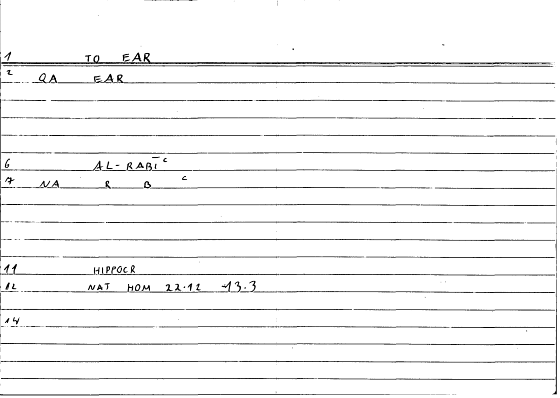 1 TO EAR
2 QA EAR
6 AL-RABĪ c
7 NA R B c
11 HIPPOCR
12 NAT HOM 22.12 -13.3
14